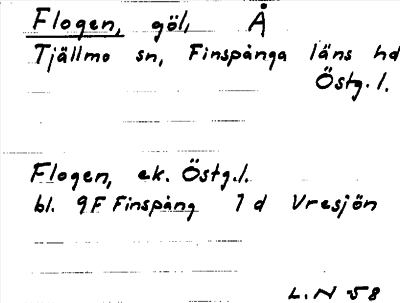 Flogen, göl, Å
Tjällmo sn, Finspånga läns hd
Östg. l.
Flogen, ek. Östg. l.
bl. 9F Finspång 1 d Vresjön
L. N 58